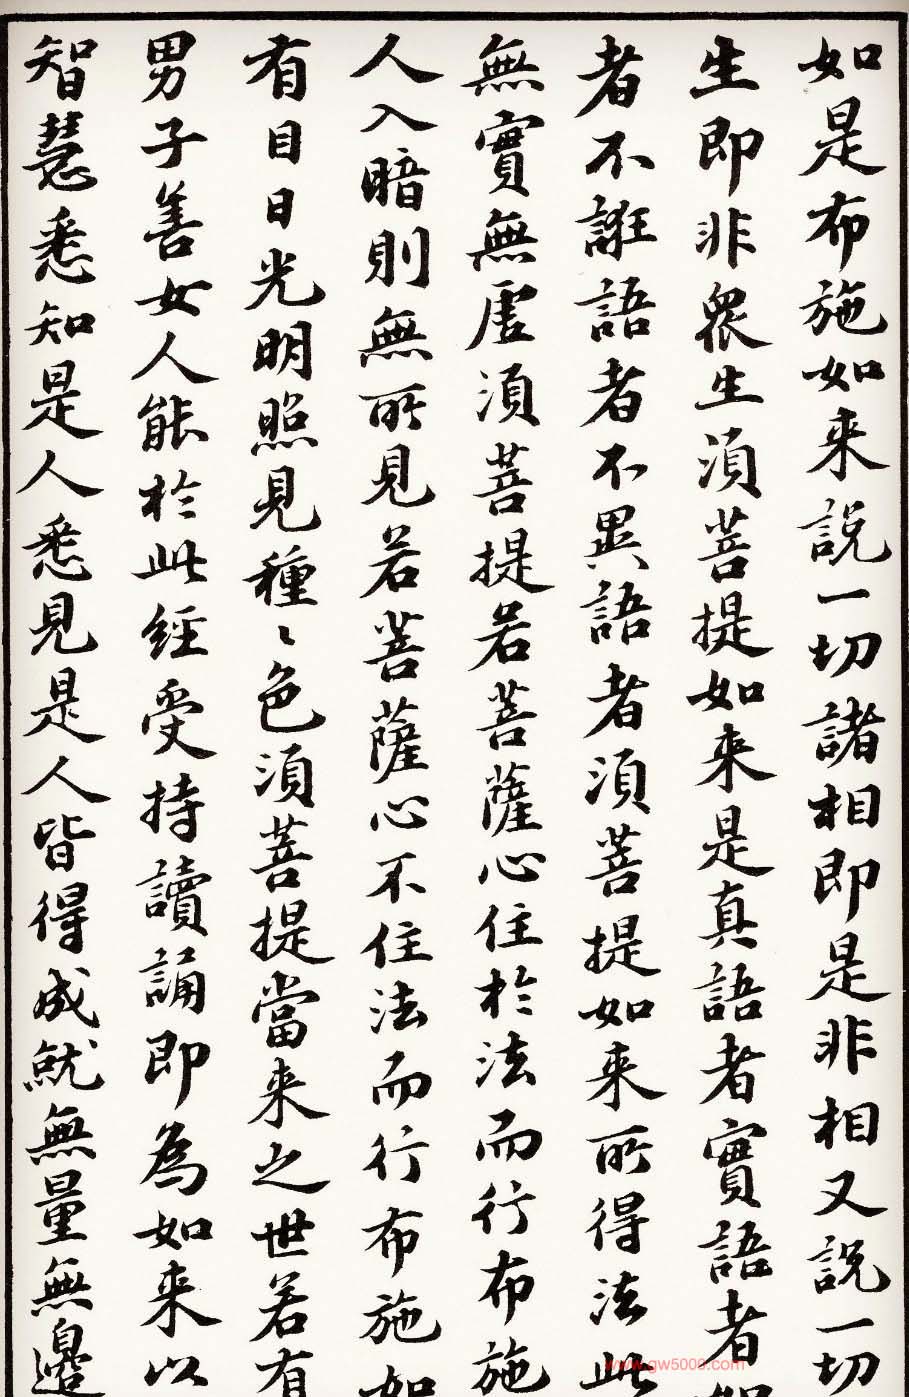 如是布施如来說一切諸相即是非相又說一切
生即非眾生須菩提如来是真語者實語者如
者不誑語者不異語者須菩提如来所得法此
無實無虛須菩提若菩薩心住於法而行布施
人入暗則無所見若菩薩心不住法而行布施如
有目日光明照見種〻色須菩提當来之世若有
男子善女人能於此經受持讀誦即為如来以
智慧悉知是人悉見是人皆得成就無量無邊
www.gw5000.com